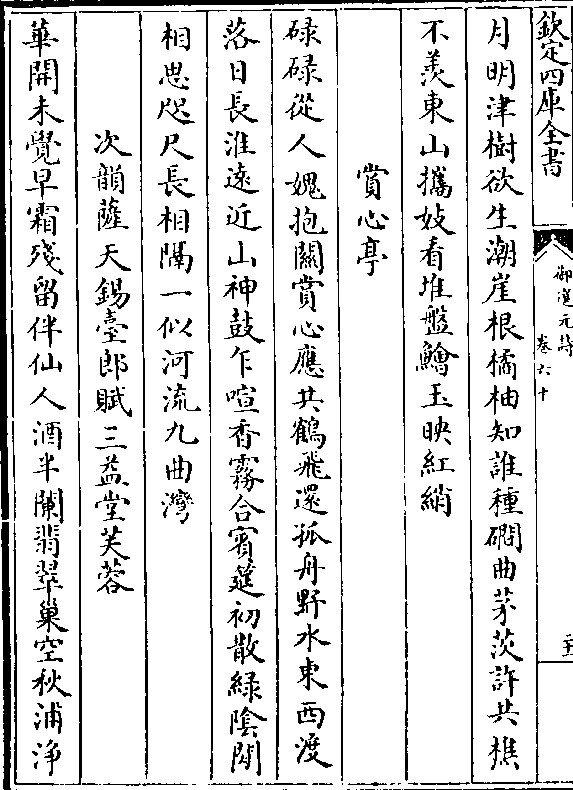 欽定四庫全書
御選元詩
卷六十
二十五
月明津樹欲生潮崖根橘柚知誰種磵曲茅茨許共樵
不羨東山攜妓看堆盤鱠玉映紅綃
賞心亭
碌碌從人媿抱關賞心應共鶴飛還孤舟野水東西渡
落日長淮遠近山神鼓乍喧香霧合賓筵初散綠陰閒
相思咫尺長相隔一似河流九曲灣
次韻薩天錫臺郎賦三益堂芙蓉
華開未覺早霜殘留伴仙人酒半闌翡翠巢空秋浦淨